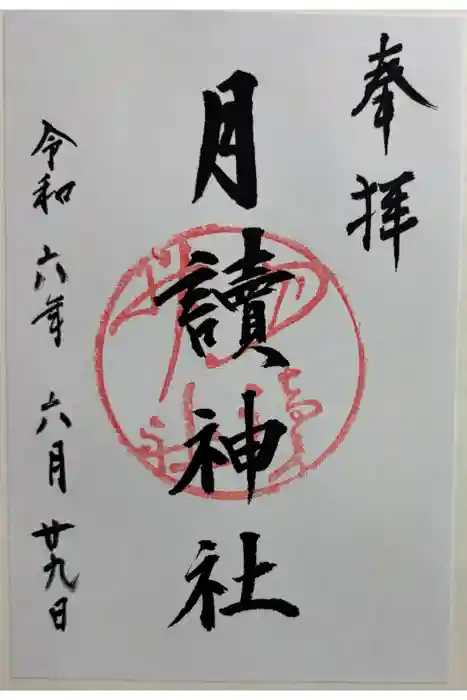 奉拝
月讀神社
令和六年六月廿九日